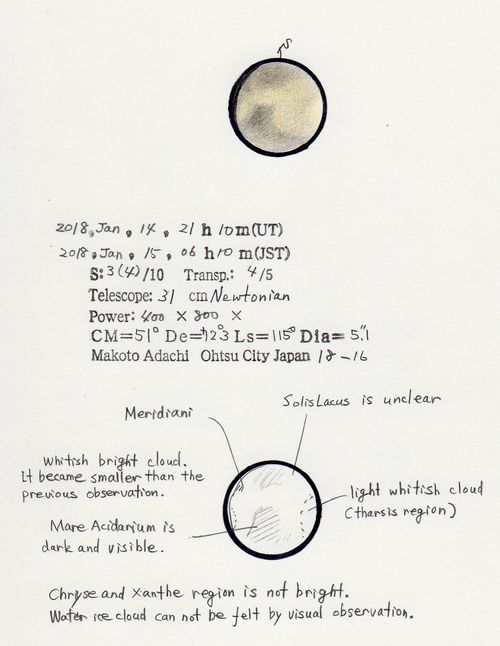 S
2018, Jan, 14, 21 h 10 m(UT)
2018, Jan, 15, 06 h 10 m(JST)
S: 3(4)/10 Transp.: 4/5
Telescope: 31 cm Newtonian
Power: 400 × 800 ×
CM=51° De=+12°3 Ls=115° Dia= 5."1
Makoto Adachi Ohtsu City Japan 18-16
Meridiani
Solis Lacus is unclear
Whitish bright cloud.
It became smaller than the
previous observation.
light whitish cloud
(tharsis region)
Mare Acidarium is
dark and visible.
Chryse and Xanthe region is not bright.
Water ice cloud can not be felt by visual observation.